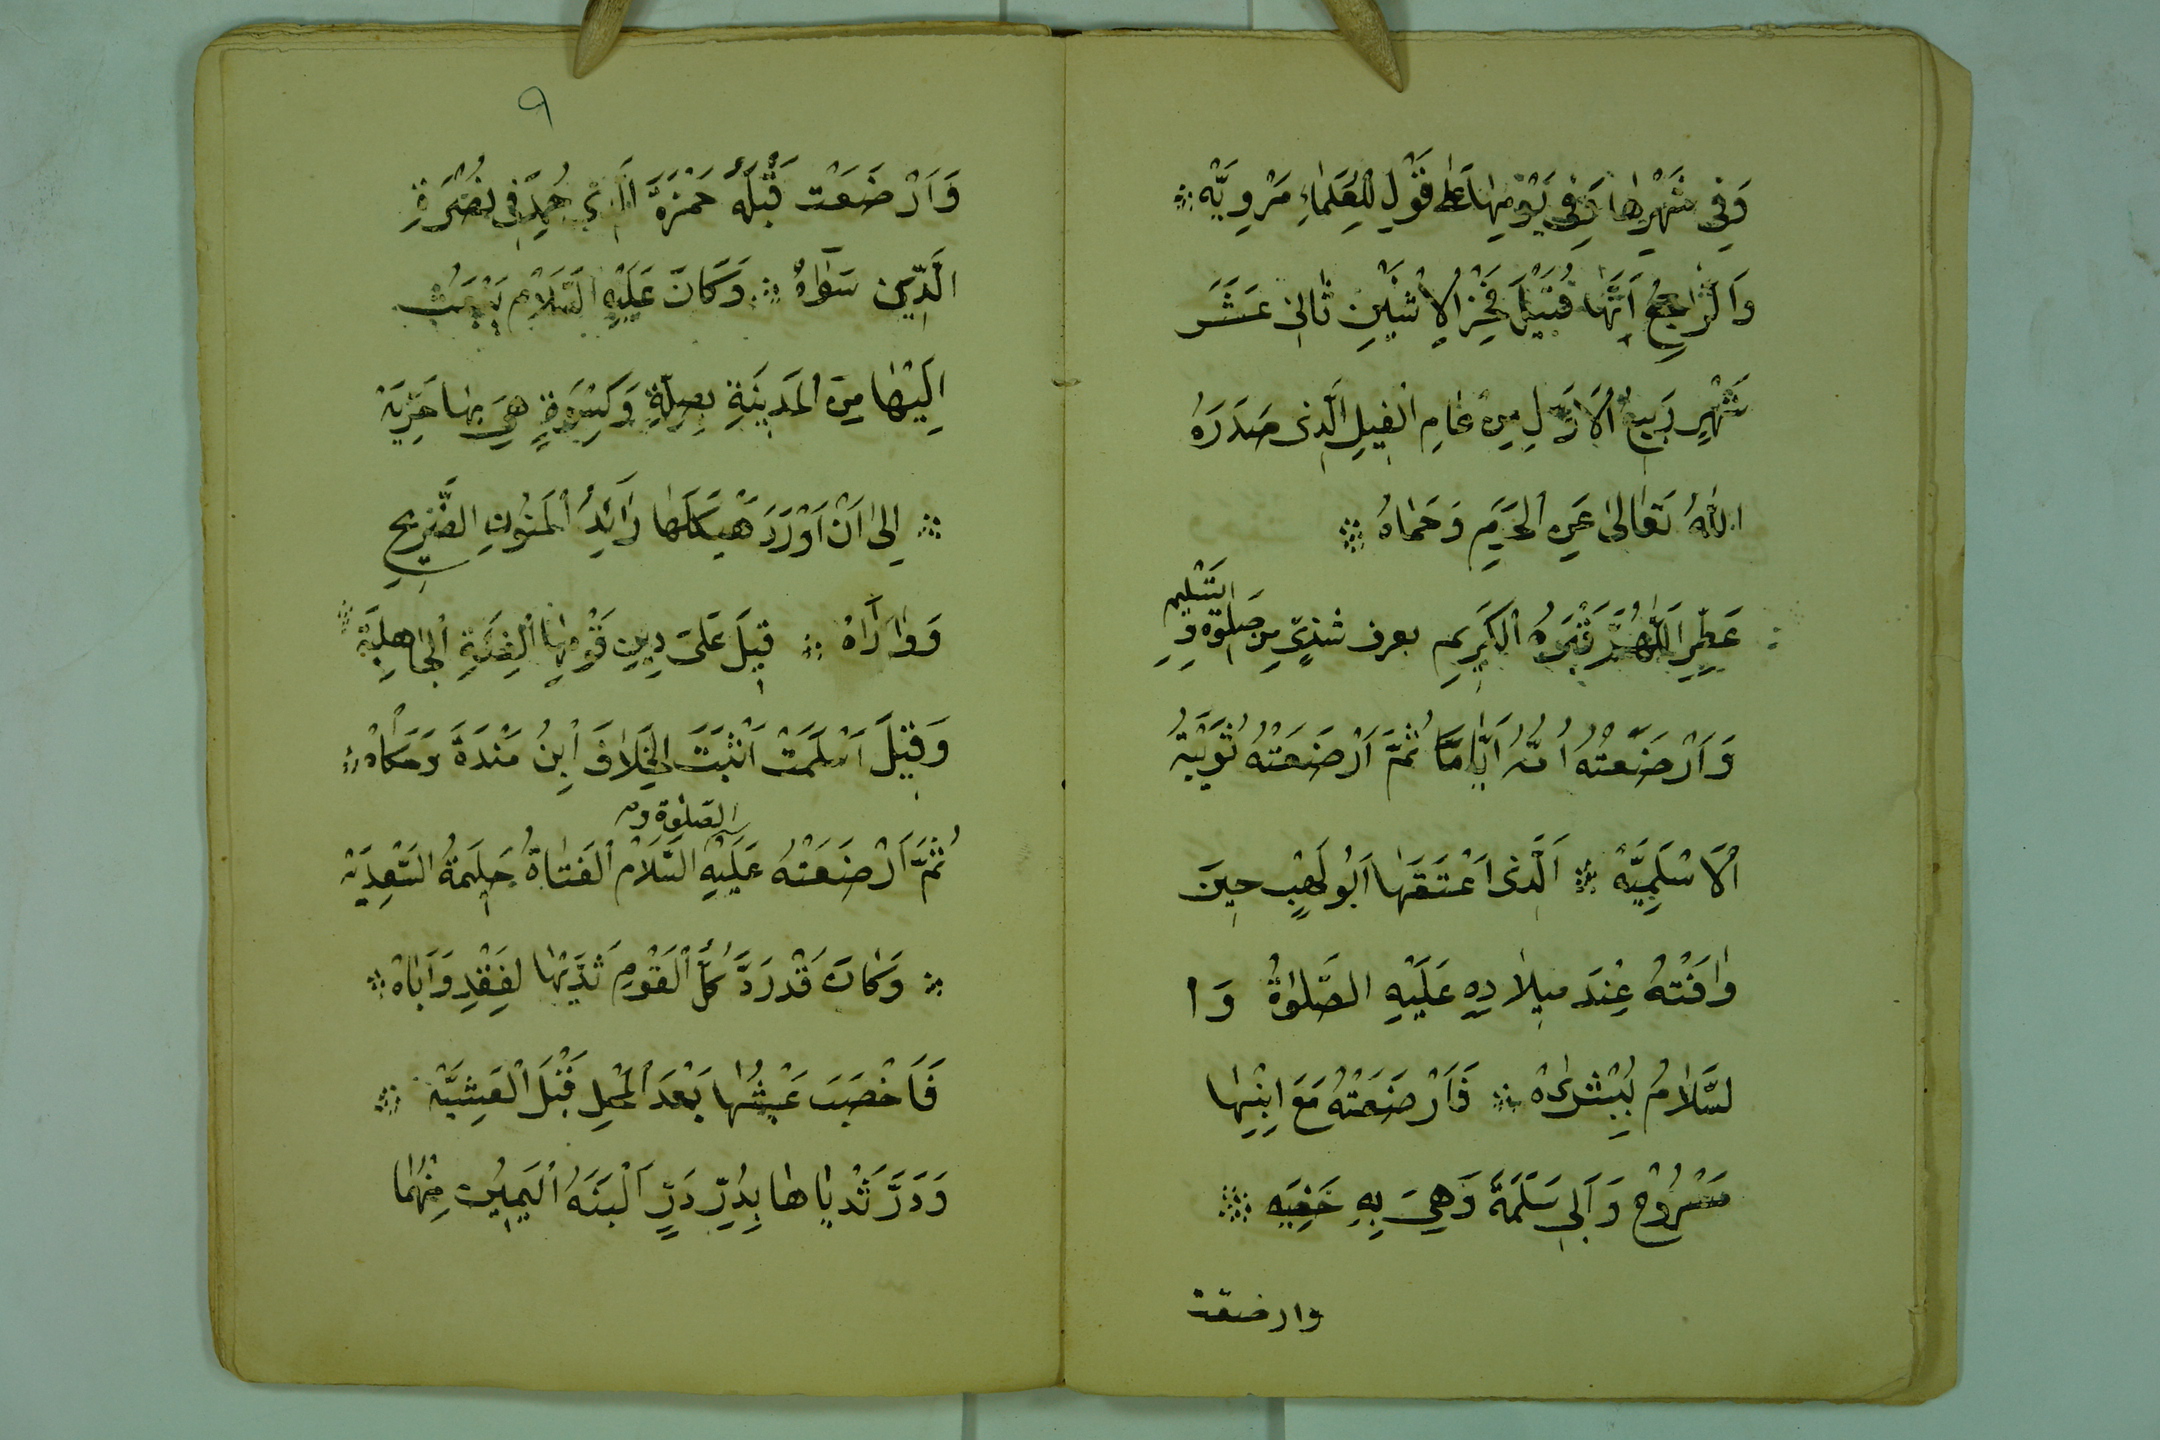 وَفِي شَهْرِهَا وَفِي يَوْمِهَا عَلَى قَوْلٍ لِلْعُلَمَاءِ مَرْوِيَّه
وَالرَّاجِحُ اَنَّهَا قُبَيْلَ فَجْرِ الْاِثْنَيْنِ ثَانِى عَشَرَ
شَهْرِ رَبِيعِ الْاَوَّلِ مِنْ عَامِ الْفِيلِ الَّذِى صَدَرَهُ
اللّٰهُ تَعَالىٰ عَنِ الْحَرَمِ وَحَمَاهُ
عَطِّرِ اللّٰهُمَّ قَبْرَهُ الْكَرِيم بعرف شذىّ مِن صَلوة وَ التَسْلِيم
وَاَرْضَعَتْهُ اُمُّهُ اَيَّامًا ثُمَّ اَرْضَعَتْهُ ثُوَيْبَةُ
الْاَسْلَمِيَّةُ الَّذِى اَعْتَقَهَا اَبُو لَهَبٍ حِينَ
وَافَتْهُ عِنْدَ مِيلَادِهِ عَلَيْهِ الصَّلوٰةُ وَا
لسَّلَامُ بِبُشْرَىٰهْ فَاَرْضَعَتْهُ مَعَ ابْنِهَا
مَسْرُوْحٍ وَاَبِى سَلَمَةَ وَهِيَ بِهِ حَفِيَه
وارضعت
٩
وَاَرْضَعَتْ قَبْلَهُ حَمْزَةَ الَّذِى حُمِدَ فِى نُصْرَةِ
الدِّينِ سَرَاهُ وَكَانَ عَلَيْهِ السَّلَامُ يَبْعَثُ
اِلَيْهَا مِنَ الْمَدِينَةِ بِصِلَةٍ وَكِسْوَةٍ هِيَ بِهَا حَرِيَّة
اِلىٰ اَنْ اَوْرَدَ هَيْكَلَهَا رَائِدُ الْمَنُونِ الضَّرِيحِ
وَوَارَاهُ قِيلَ عَلىَ دِينِ قَوْمِهَا الْفِئَةِ الْجَاهِلِيَّة
وَقِيلَ اَسْلَمَتْ اَثْبَتَ الْخِلَافَ ابْنُ مَنْدَةَ وَحَكَاهْ
ثُمَّ اَرْضَعَتْهُ عَلَيْهِ الصلوة و السَّلَامُ الْفَتَاةُ حَلِيمَةُ السَّعْدِيَّه
وَكَانَ قَدْ رَدَّ كُلُّ الْقَوْمِ ثَدْيَهَا لِفَقْرِ وَاَبَاهْ
فَاَخْصَبَ عَيْشُهَا بَعْدَ الْمَحْلِ قَبْلَ الْعَشِيَّة
وَدَرَّ ثَدْيَاهَا بِدُرِّ دَرٍّ اَلْبَنَهُ الْيَمِينُ مِنْهُمَا